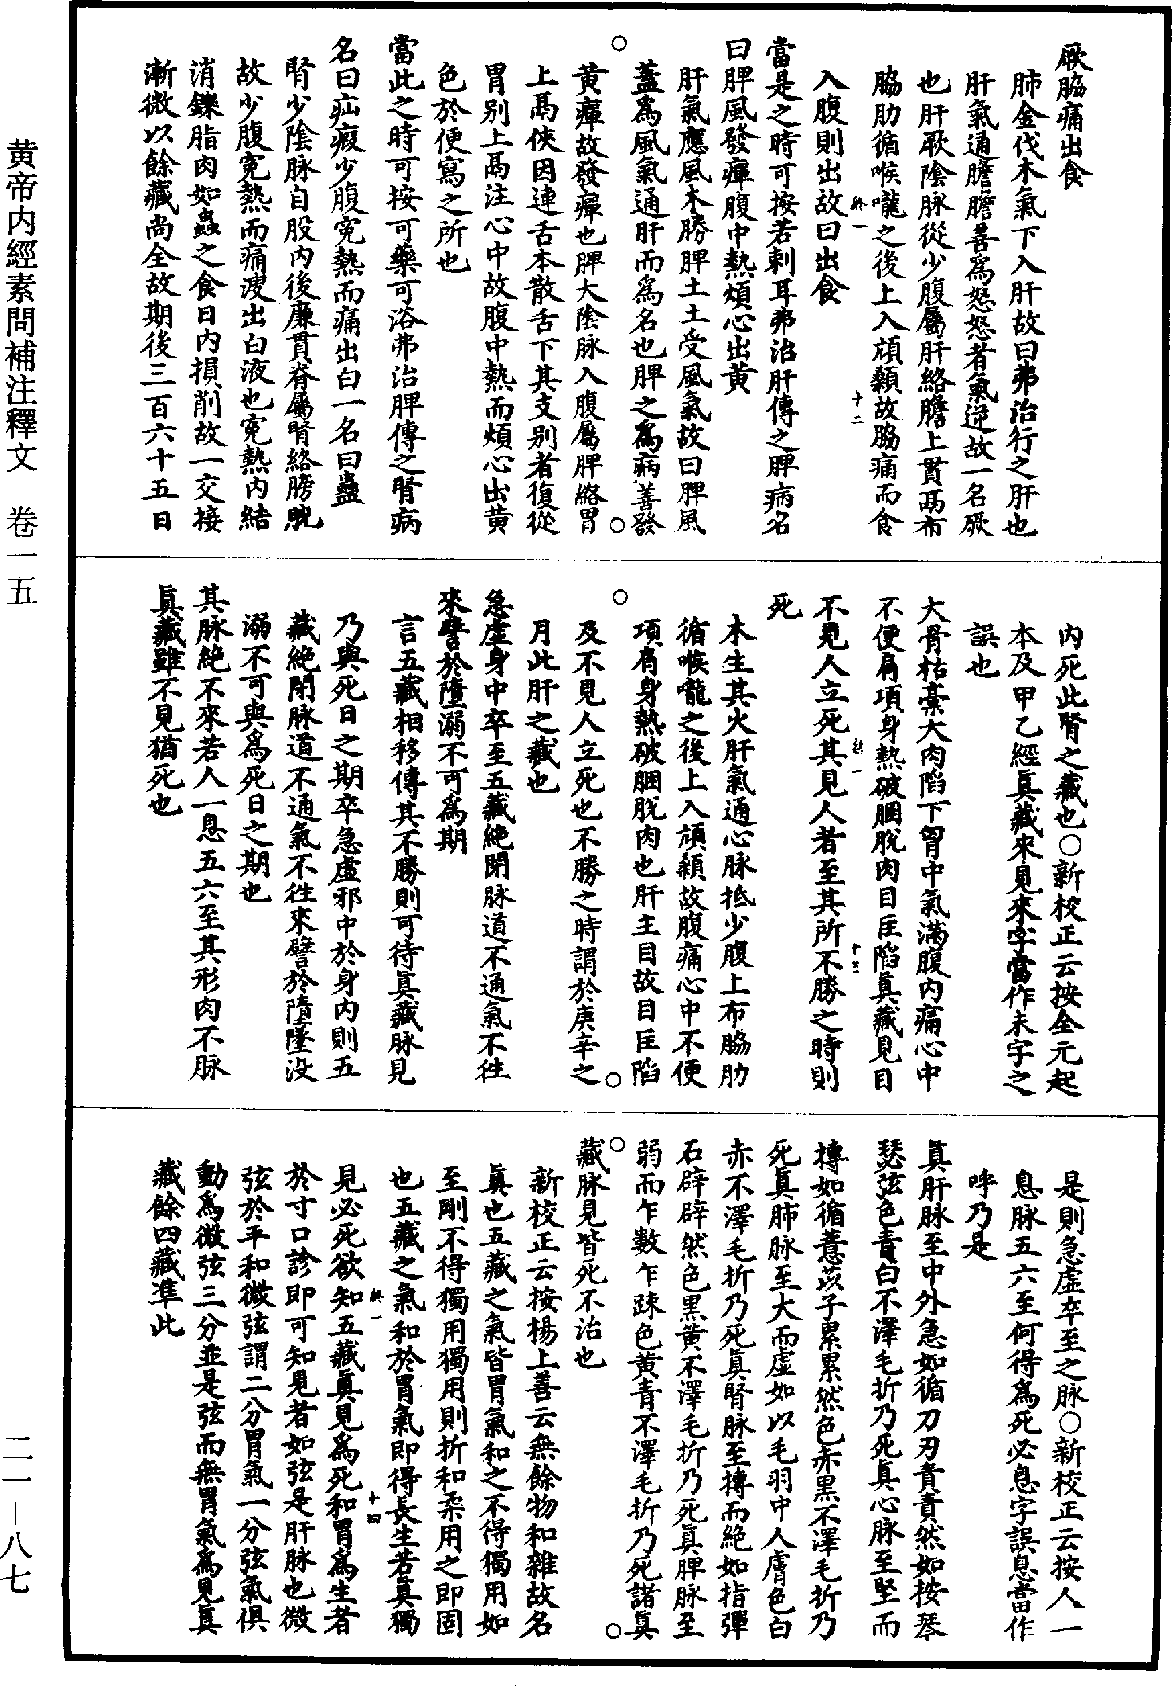 厥脇痛出食
肺金伐木氣下入肝故曰弗治行之肝也
肝氣通膽膽善爲怒怒者氣逆故一名厥
也肝厥陰脉從少腹屬肝絡膽上貫鬲布
脇肋循喉嚨之後上入頏顙故脇痛而食
入腹則出故曰出食
當是之時可按若刺耳弗治肝傳之脾病名
曰脾風發癉腹中熱煩心出黄
肝氣應風木勝脾土土受風氣故曰脾風
蓋爲風氣通肝而爲名也脾之爲病善發
黄癉故發癉也脾太陰脉入腹屬脾絡胃
上鬲俠因連舌本散舌下其支别者復從
胃别上鬲注心中故腹中熱而煩心出黄
色於便寫之所也
當此之時可按可藥可浴弗治脾傳之腎病
名曰疝瘕少腹寃熱而痛出白一名曰蠱
腎少陰脉自股内後廉貫脊屬腎絡膀胱
故少腹寃熱而痛溲出白液也寃熱内結
消鑠脂肉如蟲之食日内損削故一交接
漸微以餘藏尚全故期後三百六十五日
内死此腎之藏也○新校正云按全元起
本及甲乙經眞藏來見來字當作未字之
誤也
大骨枯槀大肉陷下胷中氣滿腹内痛心中
不便肩項身熱破䐃脫肉目匡陷眞藏見目
不見人立死其見人者至其所不勝之時則
死
木生其火肝氣通心脉抵少腹上布脇肋
循喉嚨之後上入頏顙故腹痛心中不便
項肩身熱破䐃脫肉也肝主目故目匡陷
及不見人立死也不勝之時謂於庚辛之
月此肝之藏也
急虚身中卒至五藏絶閉脉道不通氣不往
來譬於墮溺不可爲期
言五藏相移傳其不勝則可待眞藏脉見
乃與死日之期卒急虛邪中於身内則五
藏絶閉脉道不通氣不往來譬於隨墜没
溺不可與爲死日之期也
其脉絶不來若人一息五六至其形肉不脉
眞藏雖不見猶死也
是則急虛卒至之脉○新校正云按人一
息脉五六至何得爲死必息字誤息當作
呼乃是
真肝脉至中外急如循刀刃責責然如按琴
瑟弦色青白不澤毛折乃死真心脉至堅而
摶如循薏苡子累累然色赤黑不澤毛折乃
死真肺脉至大而虛如以毛羽中人膚色白
赤不澤毛折乃死眞腎脉至摶而絶如指彈
石辟辟然色黑黄不澤毛折乃死眞脾脉至
弱而乍數乍踈色黄青不澤毛折乃死諸眞
藏脉見皆死不治也
新校正云按楊上善云無餘物和雜故名
眞也五藏之氣皆胃氣和之不得獨用如
至剛不得獨用獨用則折和柔用之即固
也五藏之氣和於胃氣即得長生若眞獨
見必死欲知五藏真見爲死和胃爲生者
於寸口診即可知見者如弦是肝脉也微
弦於平和微弦謂二分胃氣一分弦氣俱
動爲微弦三分並是弦而無胃氣爲見眞
藏餘四藏準此
黄帝内經素問補注釋文　卷一五
二一—八七